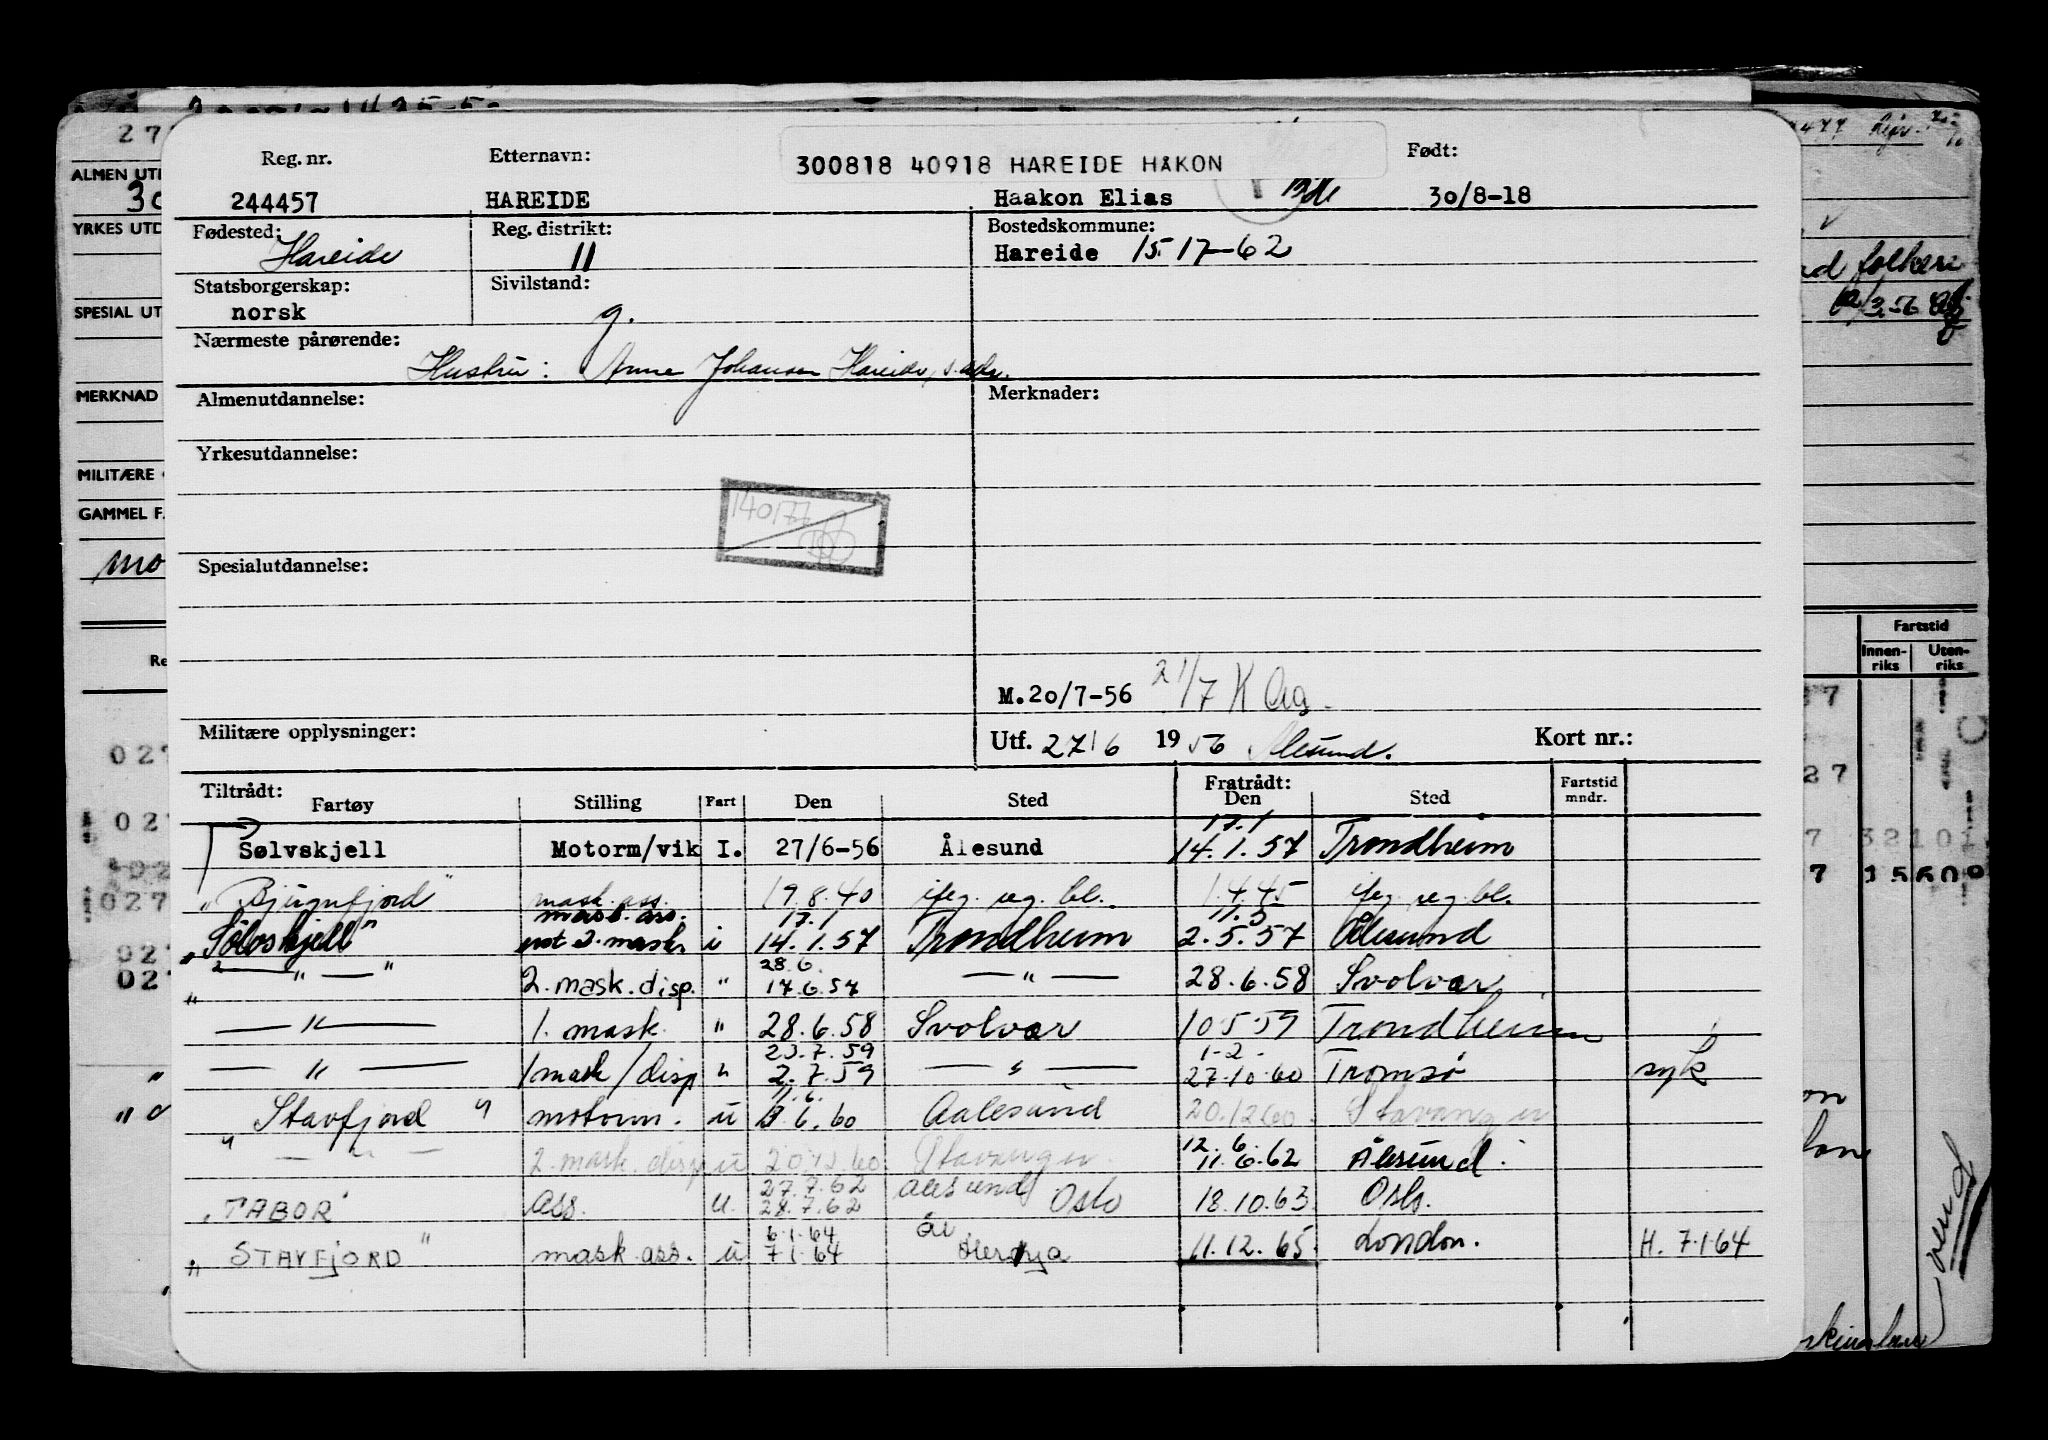 Reg. nr. Etternavn: 300818 40918 HAREIDE HÅKON Født:
244457 HAREIDE Haakon Elias 30/8-18
Fødested: Reg. distrikt: Bostedskommune:
Hareide 11 Hareide 15.17-62
Statsborgerskap: Sivilstand:
norsk g.
Nærmeste pårørende:
Hustru: Anne Johansen Hareide, s. adr.
Almenutdannelse: Merknader:
Yrkesutdannelse:
140177
Spesialutdannelse:
M.20/7-56 21/7 K Aa.
Militære opplysninger: Utf. 27/6 1956 Ålesund. Kort nr.:
Tiltrådt: Fratrådt:
Fartøy Stilling Fart Den Sted Den Sted Fartstid mndr.
17.1
Sølvskjell Motorm/vik I. 27/6-56 Ålesund 14.1.57 Trondheim
"Bjürnfjord" mask. ass. 19.8.40 ifg. reg. bl. 1.4.45 ifg. reg. bl.
mask. ass. 17.1 11.5
"Sölvskjell" i 14.1.57 Trondheim 2.5.57 Ålesund
28.6.
" — " — " 2. mask. disp. " 17.6.57 — " — 28.6.58 Svolvær
— " — 1. mask. " 28.6.58 Svolvær 10.5.59 Trondheim
23.7.59 1-2-
— " — 1 mask/disp " 2.7.59 — " — 27.10.60 Tromsø syk
11.6.
"Stavfjord" motorm. u 6.60 Aalesund 20.12.60 Stavanger
12.6
" — " — 2. mask. disp u 20.12.60 Stavanger. 11.6.62 Ålesund.
27.7.62 Aalesund
"TABOR" ass. u. 28.7.62 Oslo 18.10.63 Oslo.
6.1.64 Ål
"STAVFJORD" mask ass. u 7.1.64 Herøya 11.12.65 London. H. 7.1.64
27
ALMEN UT
30
YRKES UTD
SPESIAL UT
MERKNAD
MILITÆRE
GAMMEL F.
mo
Re
02
folkere
Fartstid
Innen-riks Uten-riks
27